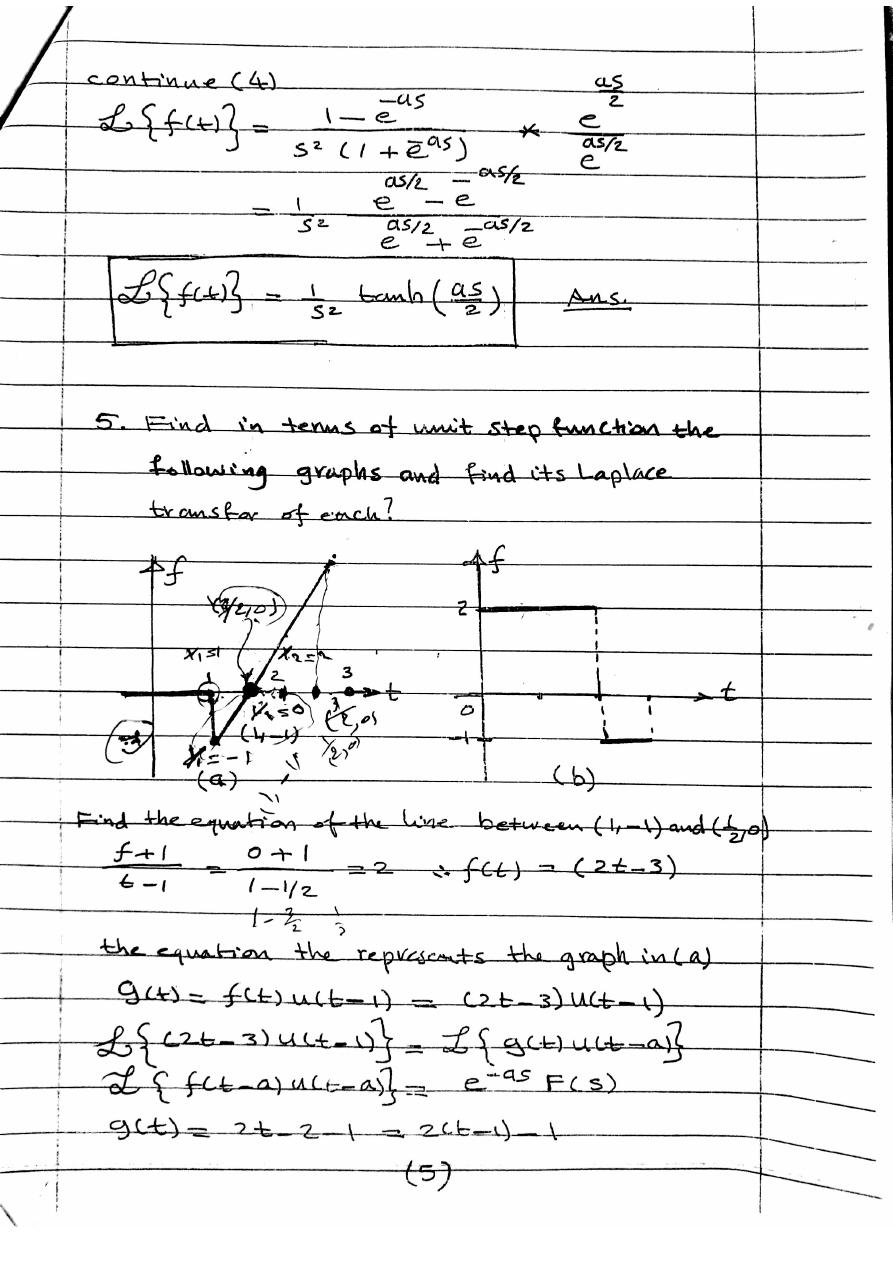 continue (4)
ℒ{f(t)} = (1 - e^-as) / (s² (1 + e^-as)) * e^(as/2) / e^(as/2)
= 1/s² (e^(as/2) - e^(-as/2)) / (e^(as/2) + e^(-as/2))
ℒ{f(t)} = 1/s² tanh(as/2) Ans.
5. Find in terms of unit step function the
following graphs and find its Laplace
transfor of each?
f
(3/2,0)
x₁=1 x₂=2
1 2 3 t
y₂=0 (3/2,0)
(1,-1) 1/2,0)
y₁=-1
(a)
f
2
0 t
-1
(b)
Find the equation of the line between (1,-1) and (1/2,0)
(f+1)/(t-1) = (0+1)/(1-1/2) = 2 ∴ f(t) = (2t-3)
1-3/2
the equation the represents the graph in (a)
g(t) = f(t) u(t-1) = (2t-3) u(t-1)
ℒ{(2t-3) u(t-1)} = ℒ{g(t) u(t-a)}
ℒ{f(t-a) u(t-a)} = e^-as F(s)
g(t) = 2t-2-1 = 2(t-1)-1
(5)